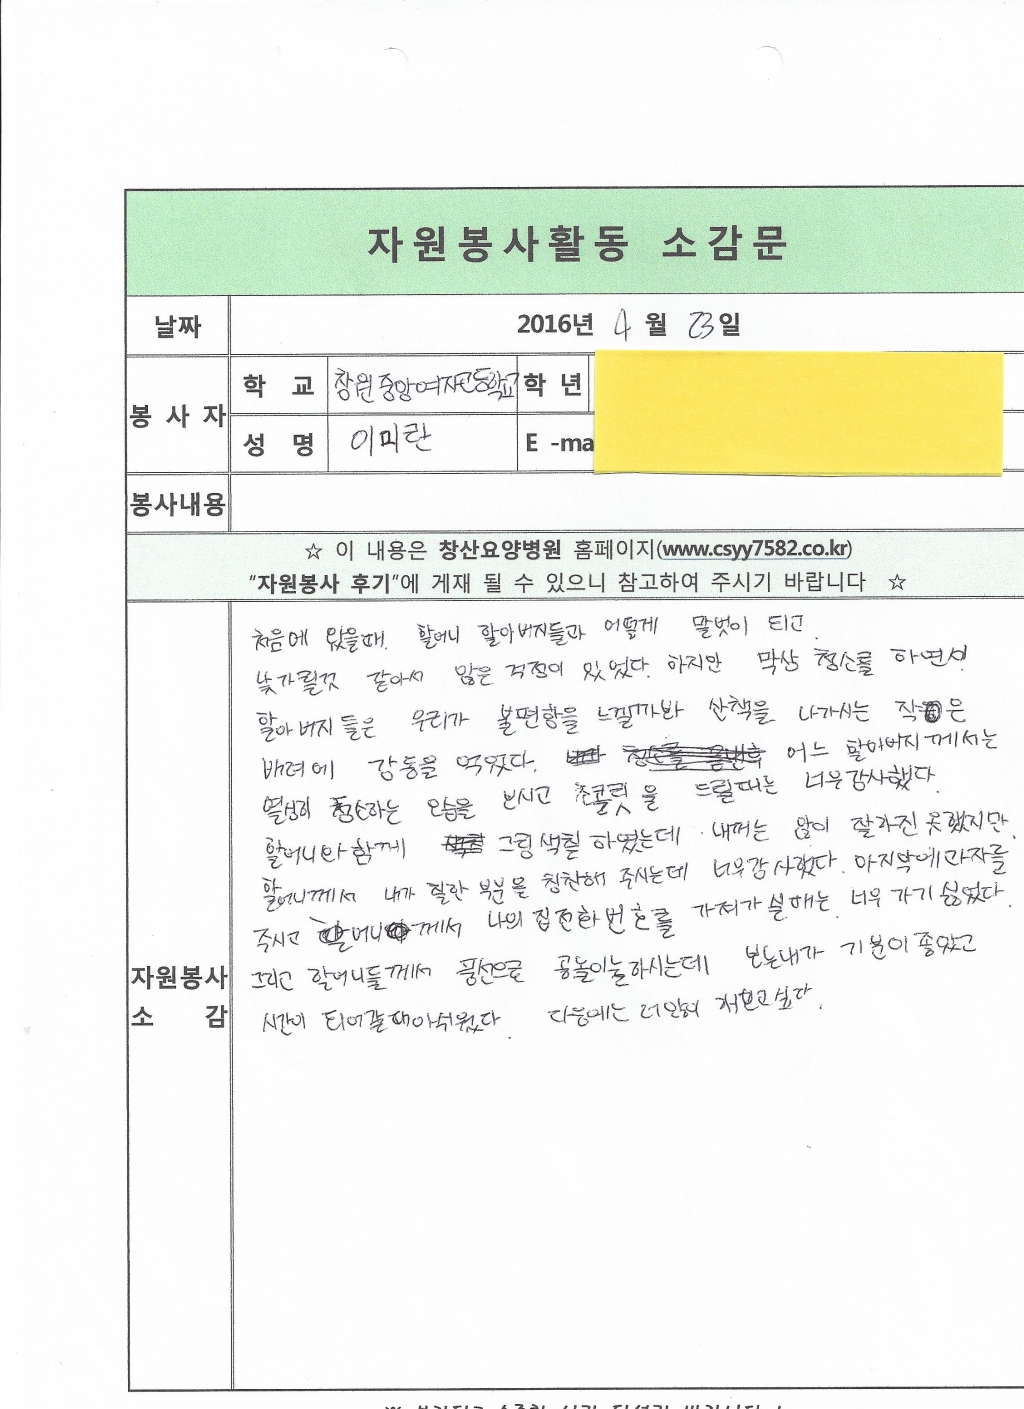 자원봉사활동 소감문
날짜 2016년 4월 23일
봉사자 학교 창원중앙여자고등학교 학년
성명 이미란 E-ma
봉사내용
☆ 이 내용은 창산요양병원 홈페이지(www.csyy7582.co.kr)
"자원봉사 후기"에 게재 될 수 있으니 참고하여 주시기 바랍니다 ☆
자원봉사
소 감
처음에 왔을때, 할머니 할아버지들과 어떻게 말벗이 되고,
낯가릴것 같아서 많은 걱정이 있었다. 하지만 막상 청소를 하면서
할아버지들은 우리가 불편함을 느낄까봐 산책을 나가시는 작은
배려에 감동을 먹었다. 어느 할아버지께서는
열심히 청소하는 모습을 보시고 초콜릿을 드릴때는 너무감사했다.
할머니와 함께 그림색칠 하였는데 내꺼는 많이 잘하진 못했지만,
할머니께서 내가 잘한 부분을 칭찬해 주시는데 너무감사했다. 마지막에과자를
주시고 할머니께서 나의 집전화번호를 가져가실때는, 너무 가기 싫었다.
그리고 할머니들께서 풍선으로 공놀이를하시는데 보는내가 기분이 좋았고
시간이 되어갈때아쉬웠다. 다음에는 더 오고싶다.